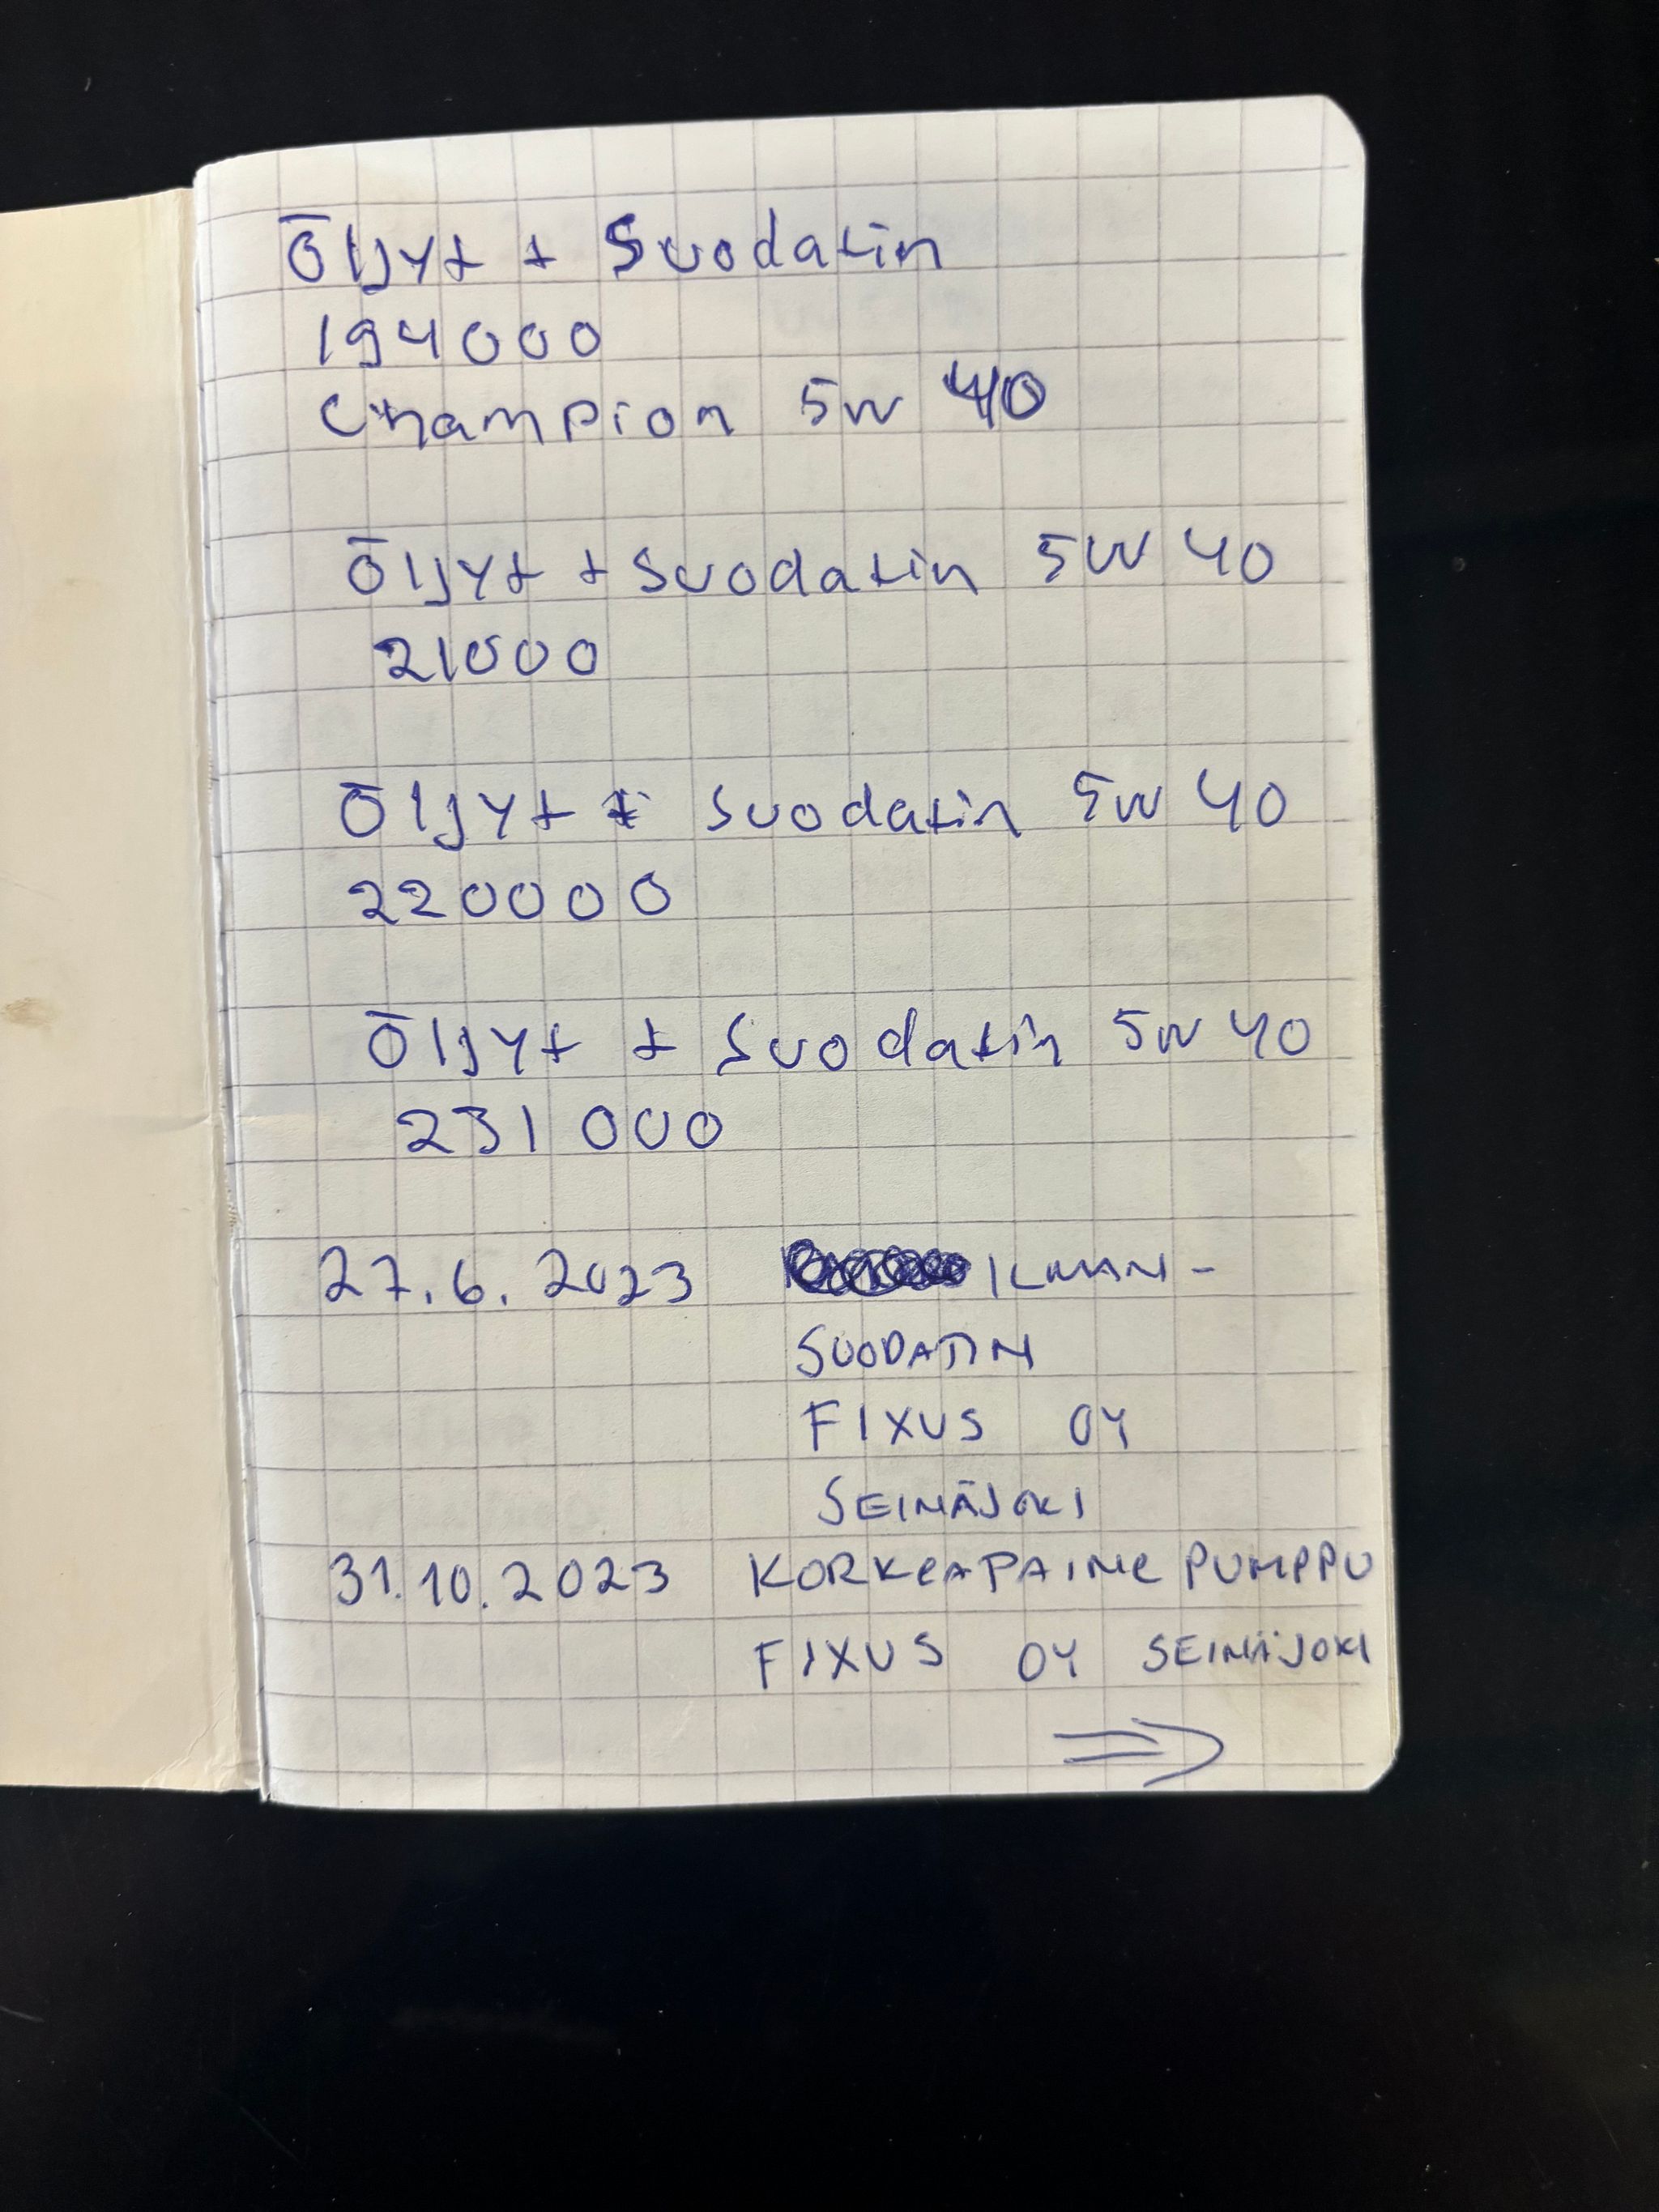 Öljyt + Suodatin
194000
Champion 5W 40
Öljyt + Suodatin 5W 40
21000
Öljyt + Suodatin 5W 40
220000
Öljyt + Suodatin 5W 40
231 000
27.6.2023 ILMAN-
SUODATIN
FIXUS OY
SEINÄJOKI
31.10.2023 KORKEAPAINE PUMPPU
FIXUS OY SEINÄJOKI